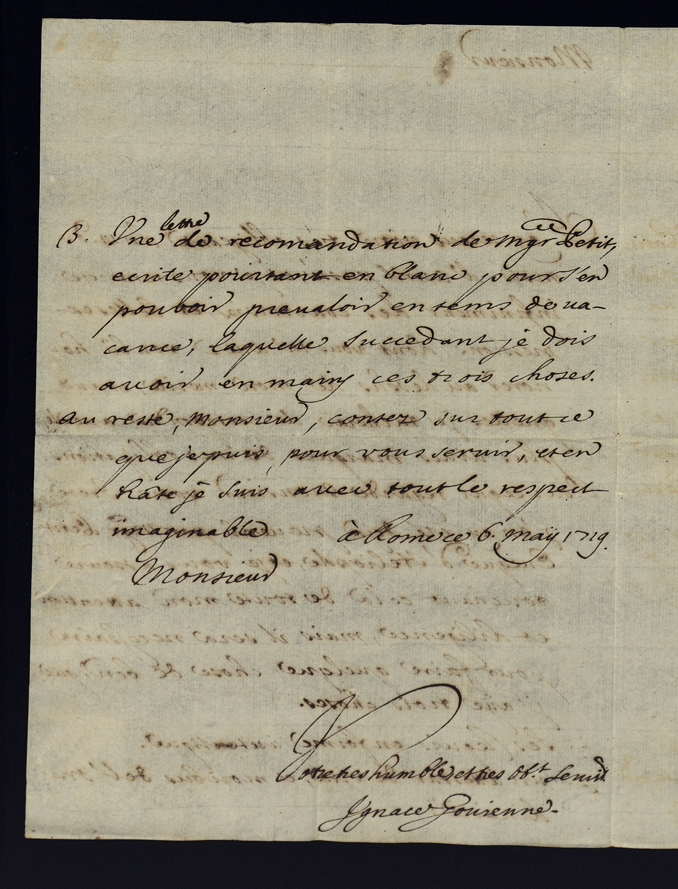 3. Vne lettre de recomandation de Mgr Petit,
ecrite pourtant en blanc pour s'en
pouvoir prevaloir en tems de va-
cance, laquelle succedant je dois
avoir en mains ces trois choses.
Au reste, Monsieur, contez sur tout ce
que je puis, pour vous servir, et en
hâte je suis avec tout le respect
imaginable à Rome ce 6 may 1719.
Monsieur
Votre tres humble et tres ob.t servit.
Ignace